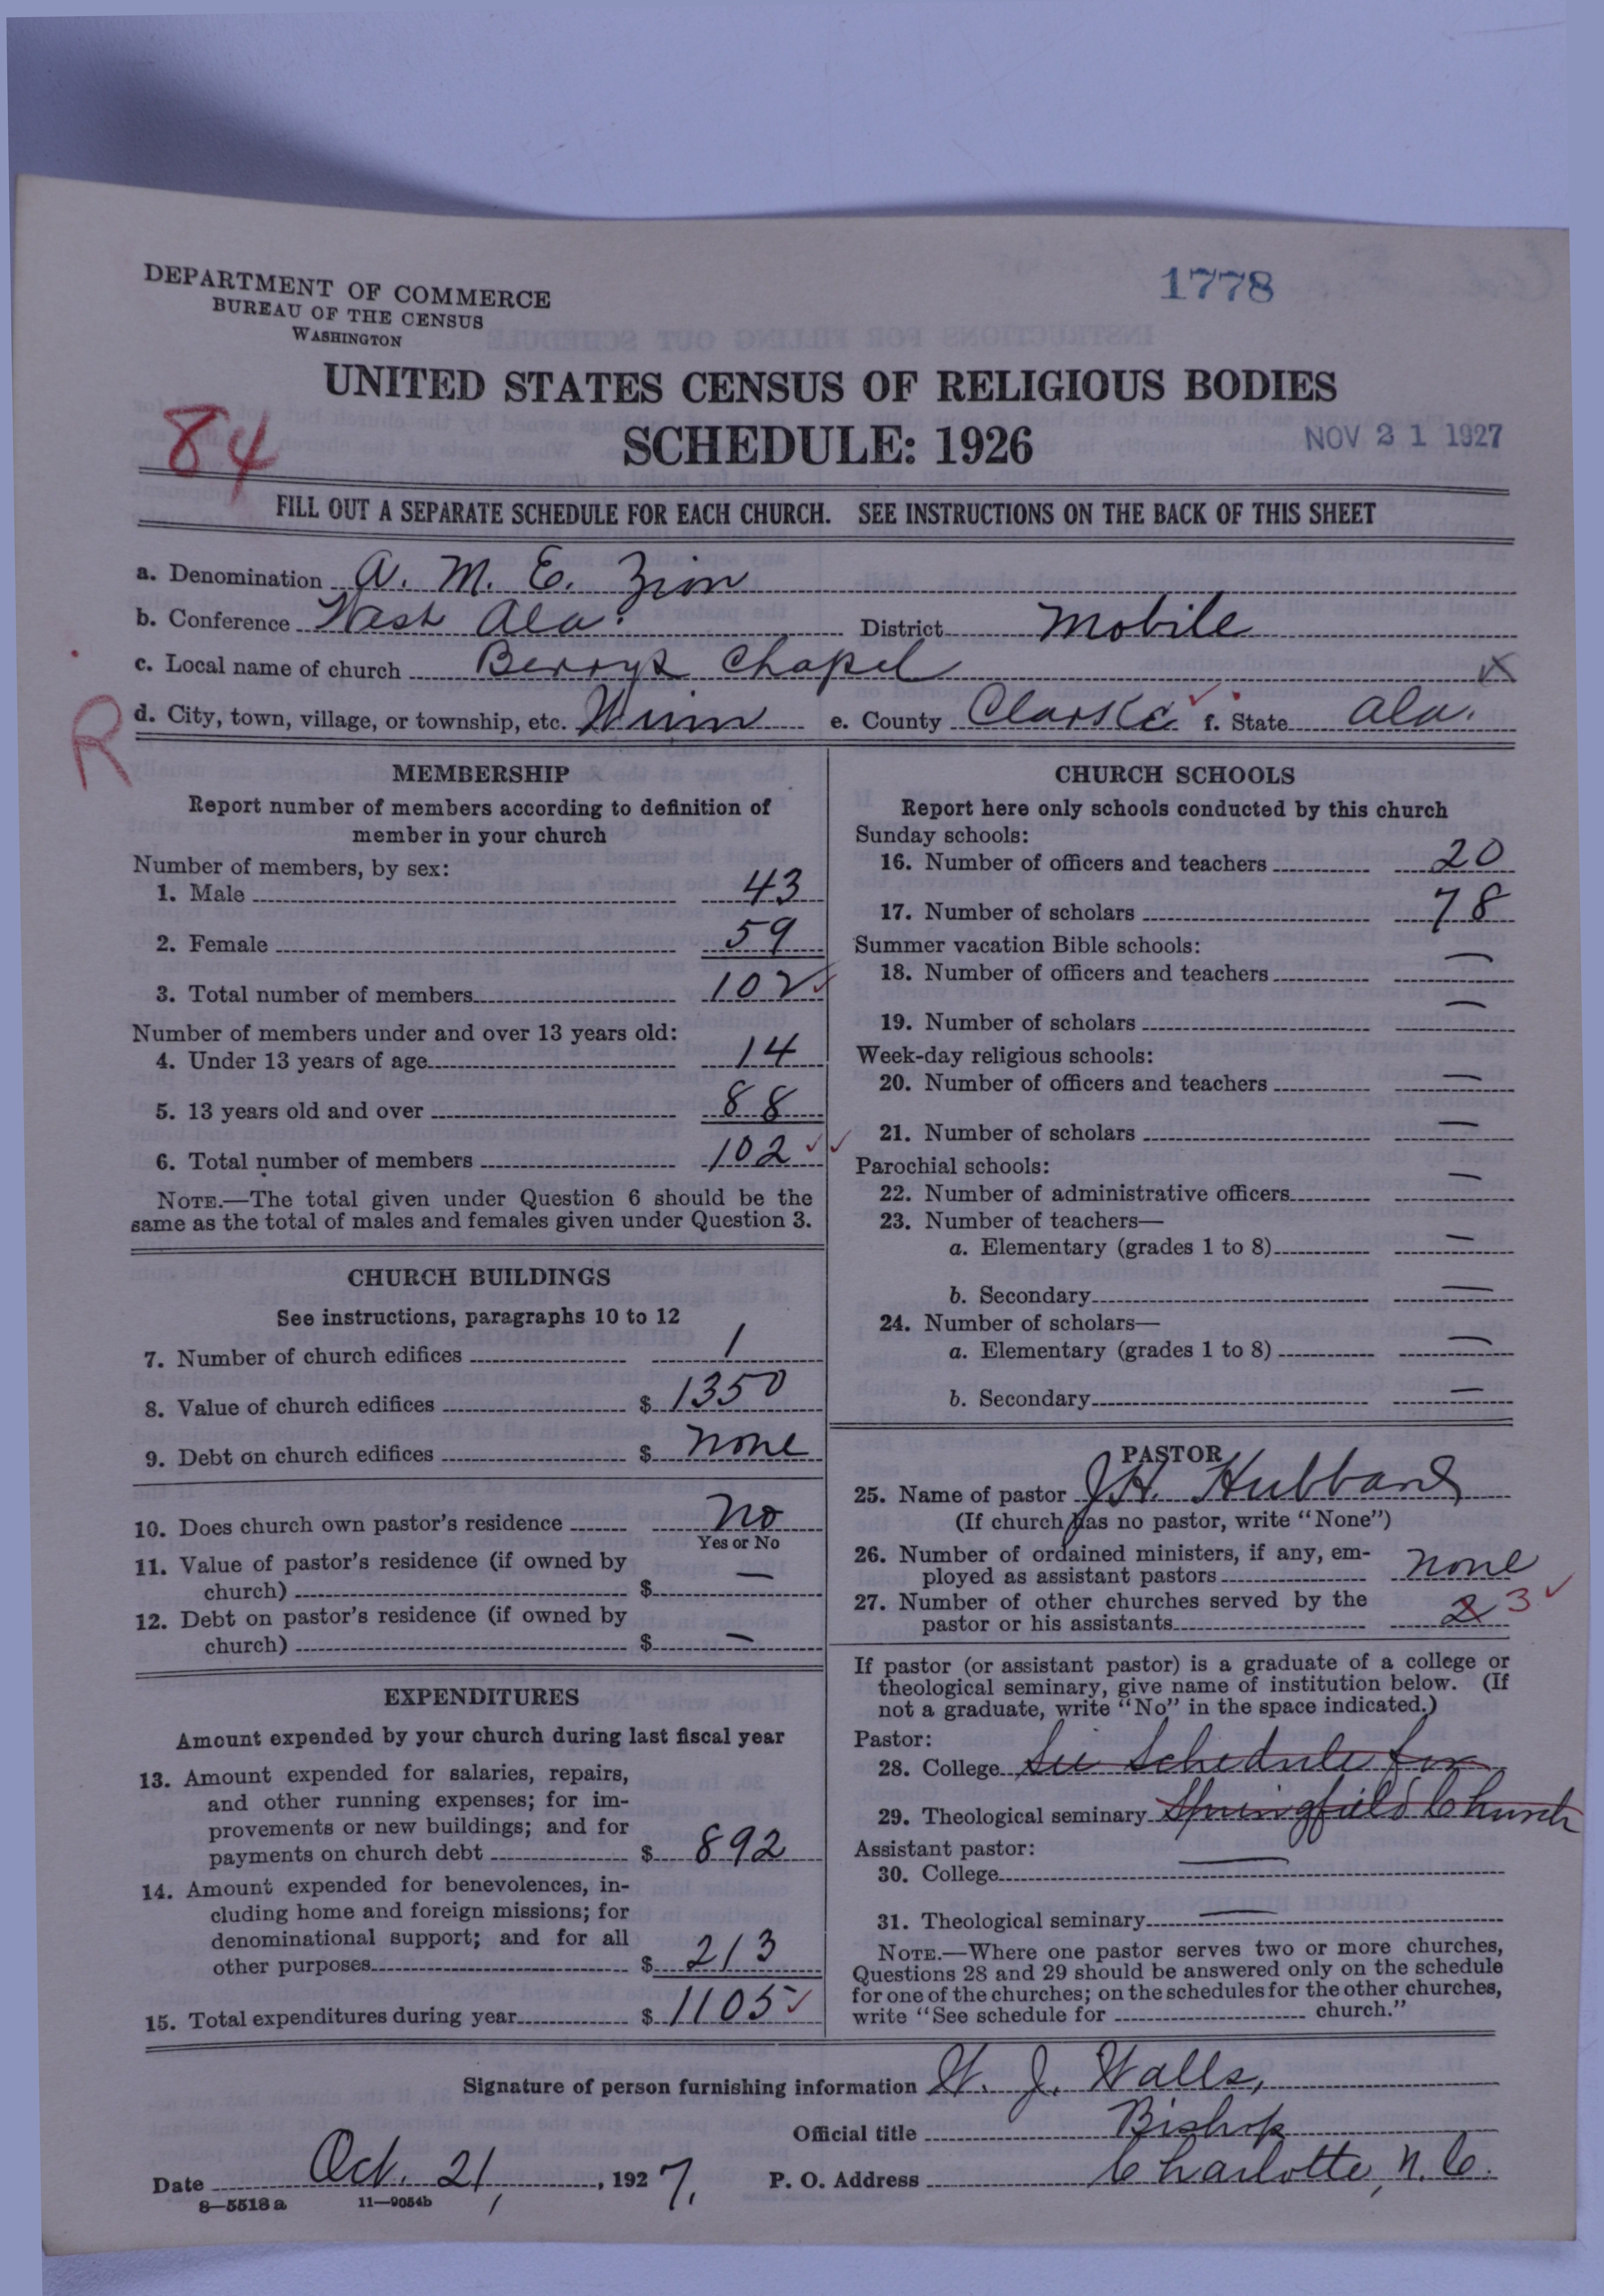 DEPARTMENT OF COMMERCE
BUREAU OF THE CENSUS
WASHINGTON
1778
UNITED STATES CENSUS OF RELIGIOUS BODIES
84
SCHEDULE: 1926
NOV 21 1927
FILL OUT A SEPARATE SCHEDULE FOR EACH CHURCH. SEE INSTRUCTIONS ON THE BACK OF THIS SHEET
a. Denomination A. M. E. Zion
b. Conference West Ala. District Mobile
c. Local name of church Berrys Chapel
R
d. City, town, village, or township, etc. Winn e. County Clarke f. State Ala.
MEMBERSHIP
Report number of members according to definition of
member in your church
Number of members, by sex:
1. Male 43
2. Female 59
3. Total number of members 102
Number of members under and over 13 years old:
4. Under 13 years of age 14
5. 13 years old and over 88
6. Total number of members 102
NOTE.—The total given under Question 6 should be the
same as the total of males and females given under Question 3.
CHURCH BUILDINGS
See instructions, paragraphs 10 to 12
7. Number of church edifices 1
8. Value of church edifices $ 1350
9. Debt on church edifices $ none
10. Does church own pastor's residence No
Yes or No
11. Value of pastor's residence (if owned by
church) $ —
12. Debt on pastor's residence (if owned by
church) $ —
EXPENDITURES
Amount expended by your church during last fiscal year
13. Amount expended for salaries, repairs,
and other running expenses; for im-
provements or new buildings; and for
payments on church debt $ 892
14. Amount expended for benevolences, in-
cluding home and foreign missions; for
denominational support; and for all
other purposes $ 213
15. Total expenditures during year $ 1105
CHURCH SCHOOLS
Report here only schools conducted by this church
Sunday schools:
16. Number of officers and teachers 20
17. Number of scholars 78
Summer vacation Bible schools:
18. Number of officers and teachers —
19. Number of scholars —
Week-day religious schools:
20. Number of officers and teachers —
21. Number of scholars —
Parochial schools:
22. Number of administrative officers —
23. Number of teachers—
a. Elementary (grades 1 to 8) —
b. Secondary —
24. Number of scholars—
a. Elementary (grades 1 to 8) —
b. Secondary —
PASTOR
25. Name of pastor J.H. Hubbard
(If church has no pastor, write "None")
26. Number of ordained ministers, if any, em-
ployed as assistant pastors none
27. Number of other churches served by the
pastor or his assistants 2 3
If pastor (or assistant pastor) is a graduate of a college or
theological seminary, give name of institution below. (If
not a graduate, write "No" in the space indicated.)
Pastor:
28. College See Schedule for
29. Theological seminary Springfield Church
Assistant pastor:
30. College —
31. Theological seminary —
NOTE.—Where one pastor serves two or more churches,
Questions 28 and 29 should be answered only on the schedule
for one of the churches; on the schedules for the other churches,
write "See schedule for church."
Signature of person furnishing information W. J. Walls,
Official title Bishop
Date Oct. 21, 1927. P. O. Address Charlotte, N. C.
8—5518a 11—9054b